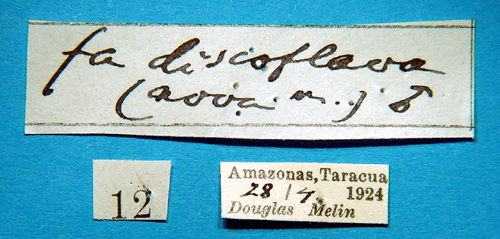 fa discoflava
(nova m.) ♂
12
Amazonas, Taracua
28/4. 1924
Douglas Melin